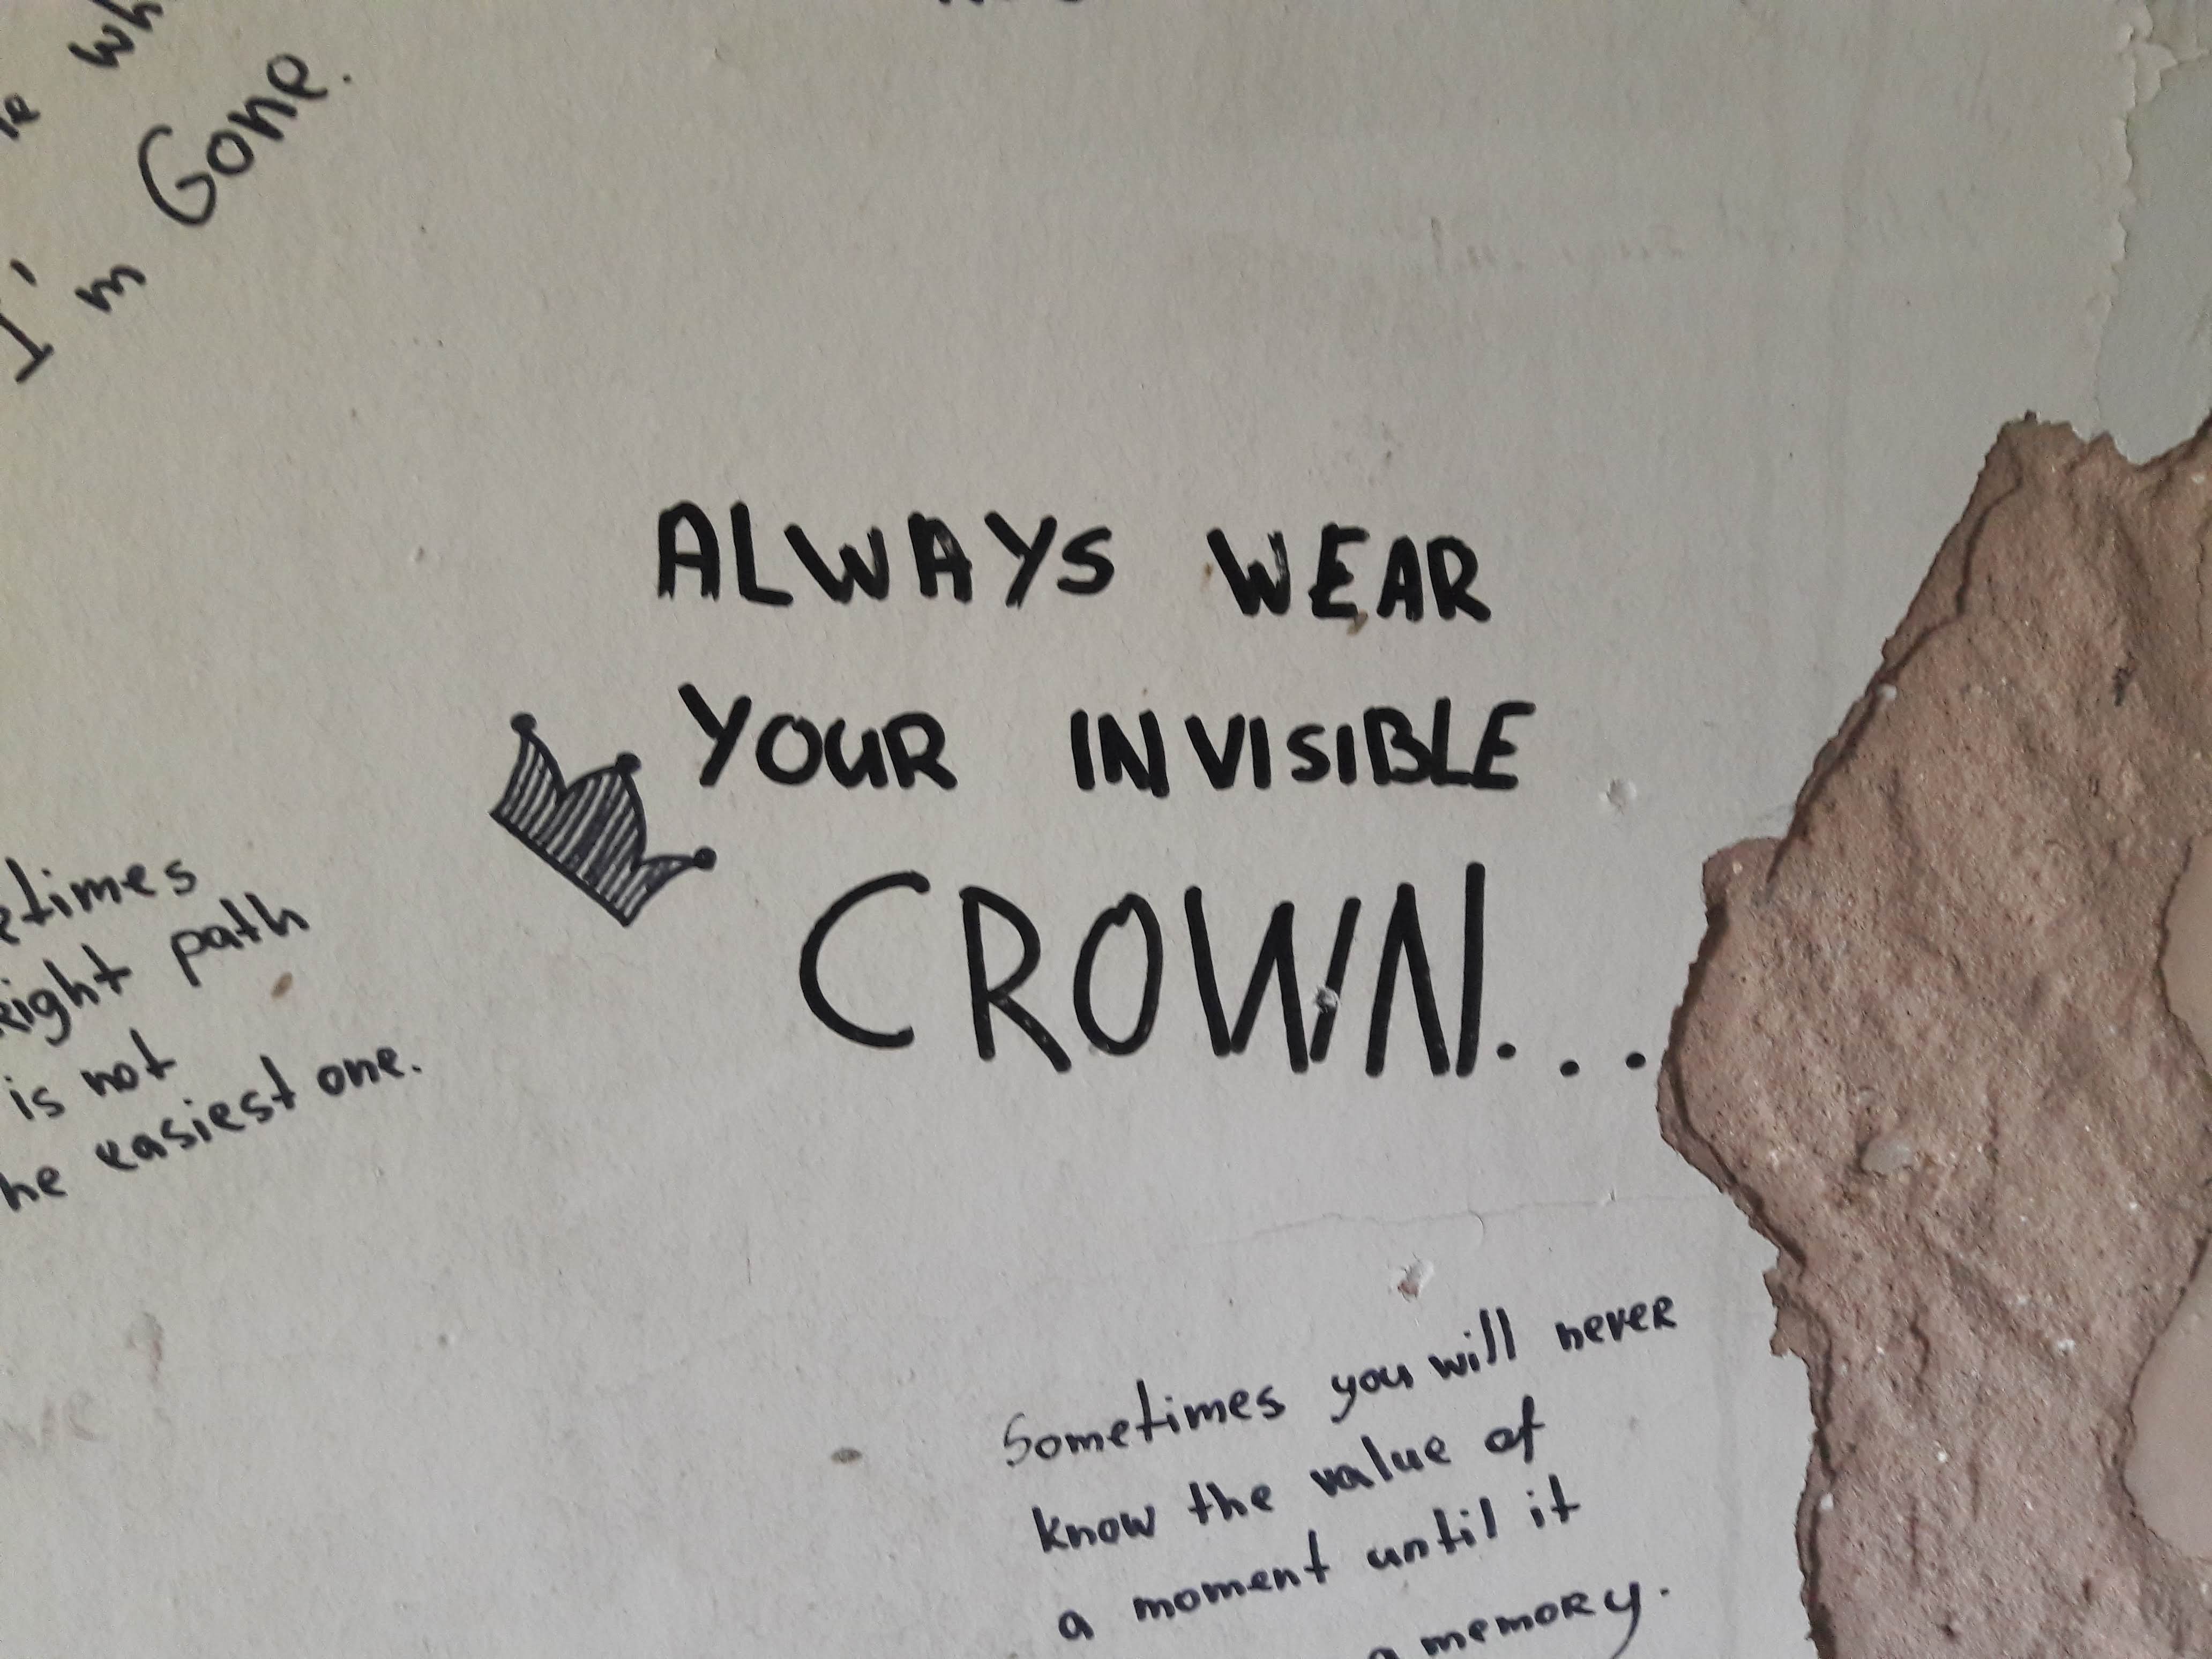 I'm Gone.
ALWAYS WEAR
YOUR INVISIBLE
CROWN...
etimes
Right path
is not
he easiest one.
Sometimes you will never
know the value of
a moment until it
a memory.